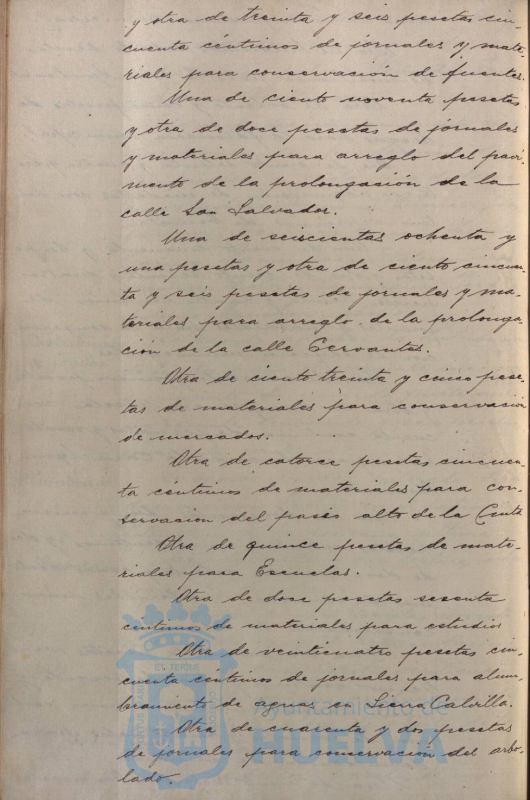 y otra de treinta y seis pesetas cin-
cuenta céntimos de jornales y mate-
riales para conservación de fuentes.
Una de ciento noventa pesetas
y otra de doce pesetas de jornales
y materiales para arreglo del pavi-
mento de la prolongación de la
calle San Salvador.
Una de seiscientas ochenta y
una pesetas y otra de ciento cincuen-
ta y seis pesetas de jornales y ma-
teriales para arreglo de la prolonga
ción de la calle Cervantes.
Otra de ciento treinta y cinco pese-
tas de materiales para conservación
de mercados.
Otra de catorce pesetas cincuen-
ta céntimos de materiales para con-
servacion del paseo alto de la Cinta
Otra de quince pesetas de mate-
riales para Escuelas.
Otra de doce pesetas sesenta
céntimos de materiales para estudio
Otra de veinticuatro pesetas cin-
cuenta céntimos de jornales para alum-
bramiento de aguas en Sierra Calvilla.
Otra de cuarenta y dos pesetas
de jornales para conservación del arbo-
lado.
Ayuntamiento de
HUELVA